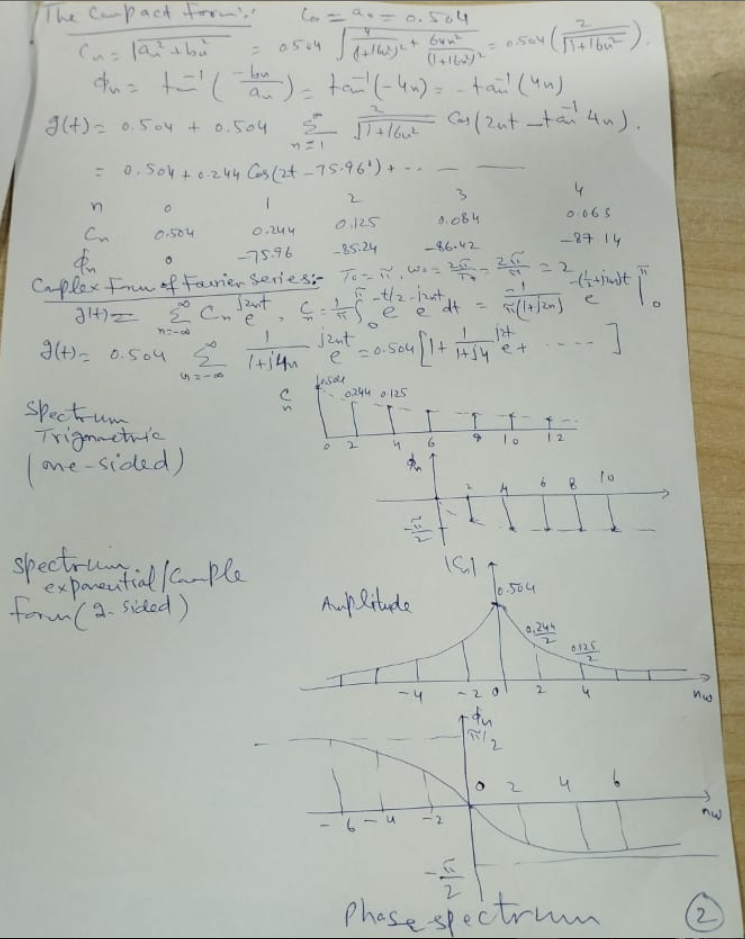 The Compact Form:-  C₀ = a₀ = 0.504
Cₙ = √(aₙ² + bₙ²) = 0.504 √(4/(1+16n²)² + 64n²/(1+16n²)²) = 0.504 (2/√(1+16n²)).
ϕₙ = tan⁻¹(-bₙ/aₙ) = tan⁻¹(-4n) = -tan⁻¹(4n)
g(t) = 0.504 + 0.504 ∞Σn=1 2/√(1+16n²) Cos(2nt - tan⁻¹ 4n).
= 0.504 + 0.244 Cos(2t - 75.96°) + ..
n 0 1 2 3 4
Cₙ 0.504 0.244 0.125 0.084 0.063
ϕₙ 0 -75.96 -85.24 -86.42 -87.14
Complex Form of Fourier Series:- T₀ = π, ω₀ = 2π/T₀ = 2π/π = 2
g(t) = ∞Σn=-∞ Cₙ e^(j2nt), Cₙ = 1/π ∫₀^π e^(-t/2) e^(-j2nt) dt = -1/π(½+j2n) e^(-(½+j2n)t) |₀^π
g(t) = 0.504 ∞Σn=-∞ 1/(1+j4n) e^(j2nt) = 0.504 [1 + 1/(1+j4) e^(j2t) + ....]
Cₙ 0.504 0.244 0.125
Spectrum
Trigometric
(one-sided)
0 2 4 6 8 10 12
ϕₙ
2 4 6 8 10
-π/2
Spectrum
exponential/Comple
form (2-sided)
|Cₙ|
0.504
Amplitude
0.244/2 0.125/2
-4 -2 0 2 4 nω
ϕₙ
π/2
0 2 4 6
-6 -4 -2 nω
-π/2
Phase spectrum
2